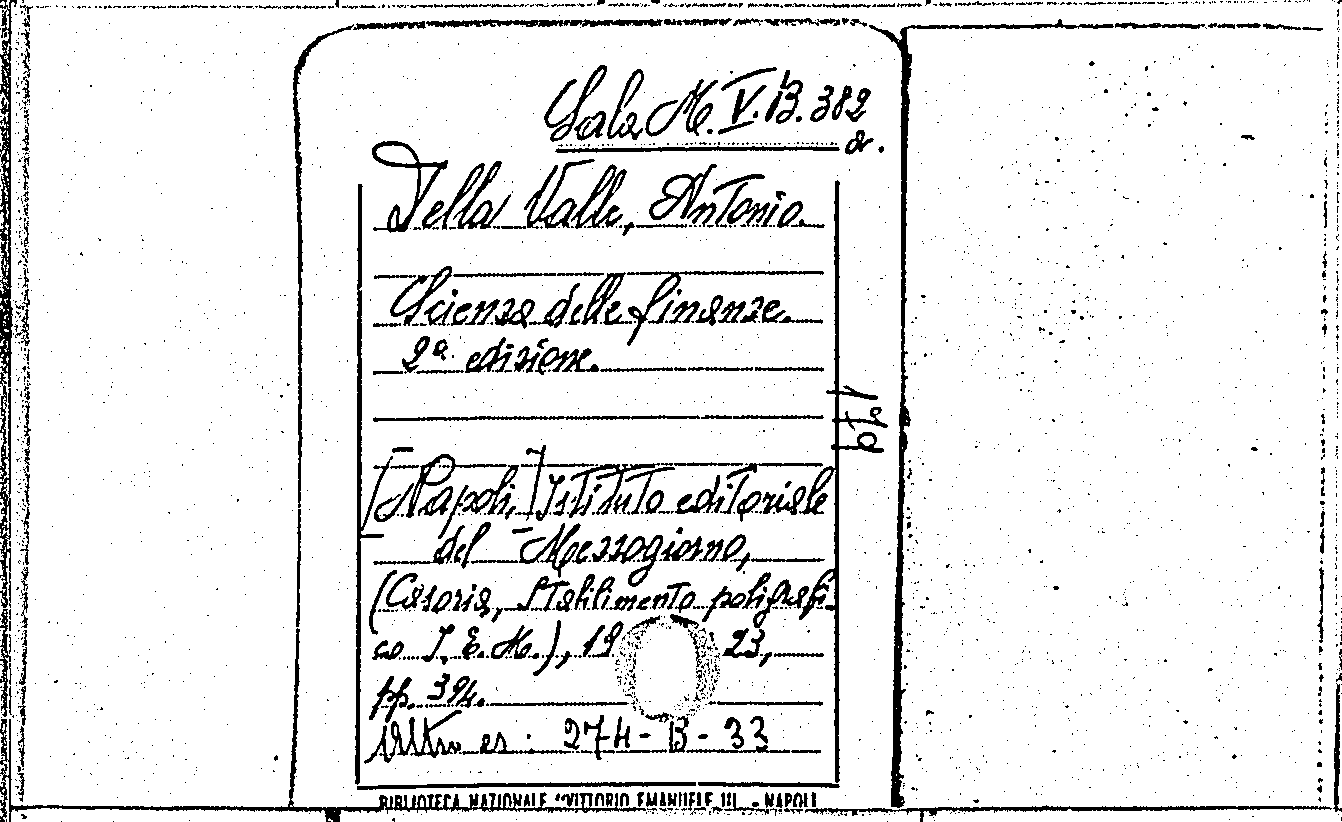 Sala M. V. B. 382
a.
Della Valle, Antonio.
Scienza delle finanze.
2ª edizione.
179
[Napoli,] Istituto editoriale
del Mezzogiorno,
(Casoria, Stabilimento poligrafi-
co I. E. M.), 1923,
pp. 394.
Altro es: 274-B-33
BIBLIOTECA NAZIONALE "VITTORIO EMANUELE III" - NAPOLI